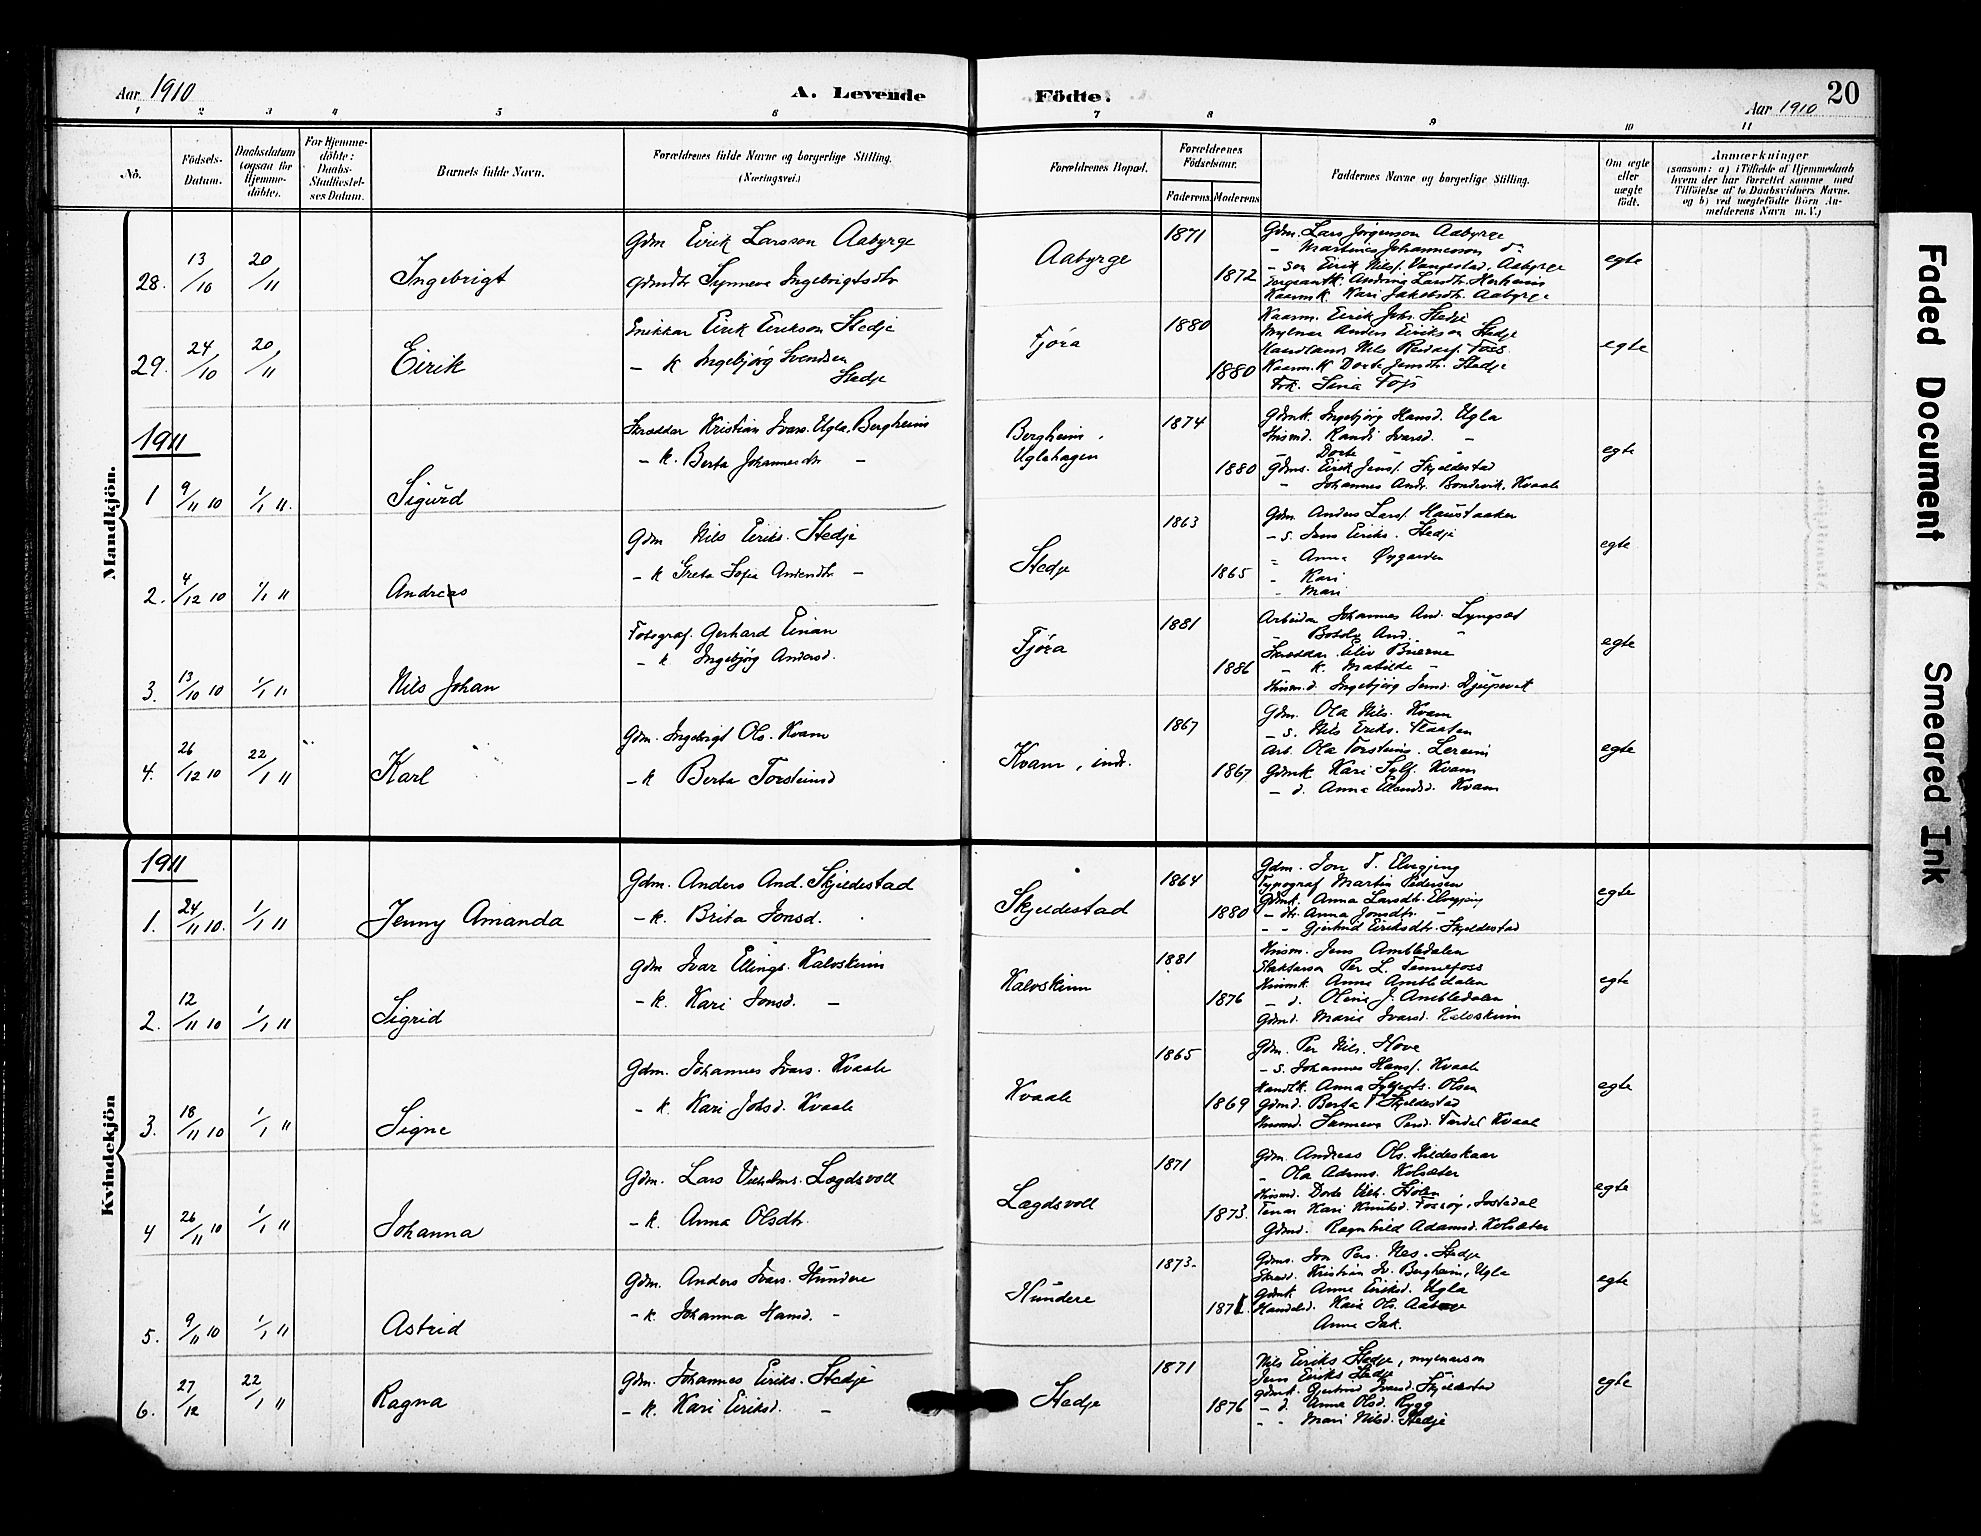 Aar 1910
A. Levende
Födte.
20
Aar 1910
1 2 3 4 5 6 7 8 9 10 11
Nô.
Födsels-Datum.
Daabsdatum (ogsaa for Hjemme-döbte).
For Hjemme-döbte: Daabs-Stadfæstel-ses Datum.
Barnets fulde Navn.
Forældrenes fulde Navne og borgerlige Stilling. (Næringsvei.)
Forældrenes Bopæl.
Forældrenes Födselsaar.
Faderens. Moderens.
Faddernes Navne og borgerlige Stilling.
Om ægte eller uægte födt.
Anmærkninger
(saasom: a) i Tilfælde af Hjemmedaab
hvem der har forrettet samme med
Tilföielse af to Daabsvidners Navne.
og b) ved uægtefödte Börn An-
melderens Navn m. V.)
Mandkjön.
28. 13/10 20/11 Ingebrigt
Gdm Eirik Larsson Aabyrge
Gdmdtr Synneva Ingebrigtsdtr
Aabyrge
1871
1872
Gdm. Lars Jørgenson Aabyrge
- Martinus Johannesson do
- son Eirik Nils/. Vangestad, Aabyrge
Sergeantk. Andrina Larsdtr. Herheim
Kaarmk. Kari Jakobsdtr. Aabyrge
egte
29. 24/10 20/11 Eirik
Snikkar Eirik Eirikson Stedje
- k Ingebjørg Svendsen
Stedje
Fjøra
1880
1880
Kaarm. Eirik Johs. Stedje
Mylnar Anders Eirikson Stedje
Handlande Nils Reidarf. Foss
Kaarm. K Dorte Jensdtr. Stedje
Frk. Sina Foss
egte
1911
1 9/11 10 1/1 11. Sigurd
Skræddar Kristian Ivars. Ugla, Bergheim
- k. Berta Johannesdtr -
Bergheim,
Uglahagen
1874
1880
Gdmk. Ingebjørg Hansd. Ugla
Husmd. Randi Ivarsd. -
- Dorte - -
Gdms. Eirik Jens/. Skjeldestad
" Johannes Andr. Bondevik, Kvaale
egte
2. 4/12 10 1/1 11 Andreas
Gdm Nils Eiriks. Stedje
- k Greta Sofia Andersdtr -
Stedje
1863
1865
Gdm. Anders Lars/. Haustaaker
- s. Jens Eiriks. Stedje
- Anna Øygarden
- Kari
- Mari
egte
3. 13/10 10 1/1 11 Nils Johan
Fotograf. Gerhard Einan
- k Ingebjørg Andersd.
Fjøra
1881
1886
Arbeidar Johannes And. Lyngset
" Botolv And. "
Skræddar Eliv Bruerne
- k. Matilde -
Husm. d. Ingebjørg Jensd. Djupevik
egte
4. 26/12 10 22/1 11 Karl
Gdm. Ingebrigt Ols. Kvam
- k Berta Torsteinsd
Kvam, indr.
1867
1867
Gdm. Ola Nils. Kvam
- s. Nils Eiriks. Flaaten
Arb. Ola Torsteins. Lereim
Gdmk Kari Sylf. Kvam
- d. Anna Erlendsd. Kvam
egte
Kvindekjön
1911
1. 24/11 10. 1/1 11 Jenny Amanda
Gdm. Anders And. Skjeldestad
- k. Brita Jonsd.
Skjeldestad
1864
1880
Gdm. Jon T. Elvegjeng
Typograf Martin Pedersen
Gdmk. Anna Larsdtr. Elvegjeng
- dtr. Anna Jonsdtr. -
- - Gjertrud Eiriksdtr. Skjeldestad
egte
2. 12/11 10 1/1 11 Sigrid
Gdm Ivar Ellings. Kalvskinn
- k. Kari Jonsd. -
Kalvskinn
1881
1876
Husm. Jens Ambledalen
Slaktarson Per L. Timnefoss
Husmk. Anna Ambledalen
- d. Oline J. Ambledalen
Gdmd. Marie Ivarsd. Kalvskinn
egte
3. 18/11 10 1/1 11 Signe
Gdm. Johannes Ivars. Kvaale
- k. Kari Johsd. Kvaale
Kvaale
1865
1869
Gdm. Per Nils. Hove
- s. Johannes Hans/. Kvaale
Handlk. Anna Sylfjerts. Olsen
Gdmd. Berta T Skjeldestad
Husmd. Synneva Persd. Fardal Kvaale
egte
4 26/11 10 1/1 11 Johanna
Gdm. Lars Vilhelms. Lægdsvoll
- k. Anna Olsdtr.
Lægdsvoll
1871
1873.
Gdm. Andreas Ols. Hildeskaar
" Ola Adams. Kolsæter
Husmd. Dorte Vilh. Stølen
Tenar Kari Knutsd. Fossøy, Jostedal
Gdmd. Ragnhild Adamsd. Kolsæter
egte
5. 9/11 10 1/1 11 Astrid
Gdm. Anders Ivars. Hundere
- k. Johanna Hansd. -
Hundere
1873.
1871.
Gdms. Jon Pers. Nes. Stedje
Skrædd. Kristian Iv. Bergheim, Ugla
Gdmk. Anna Eiriksd. Ugla
Handeld. Kari Ols. Aaberge
Anna Jak.
egte
6. 27/12 22/1 11 Ragna
Gdm. Johannes Eiriks. Stedje
- k. Kari Eiriksd. -
Stedje
1871
1876
Nils Eiriks Stedje, mylnarson
Jens Eiriks Stedje
Gdmk. Gjertrud Ivarsd. Skjeldestad
- d. Anna Olsd. Rygg
- - Mari Nilsd. Stedje
egte
Faded Document
Smeared Ink